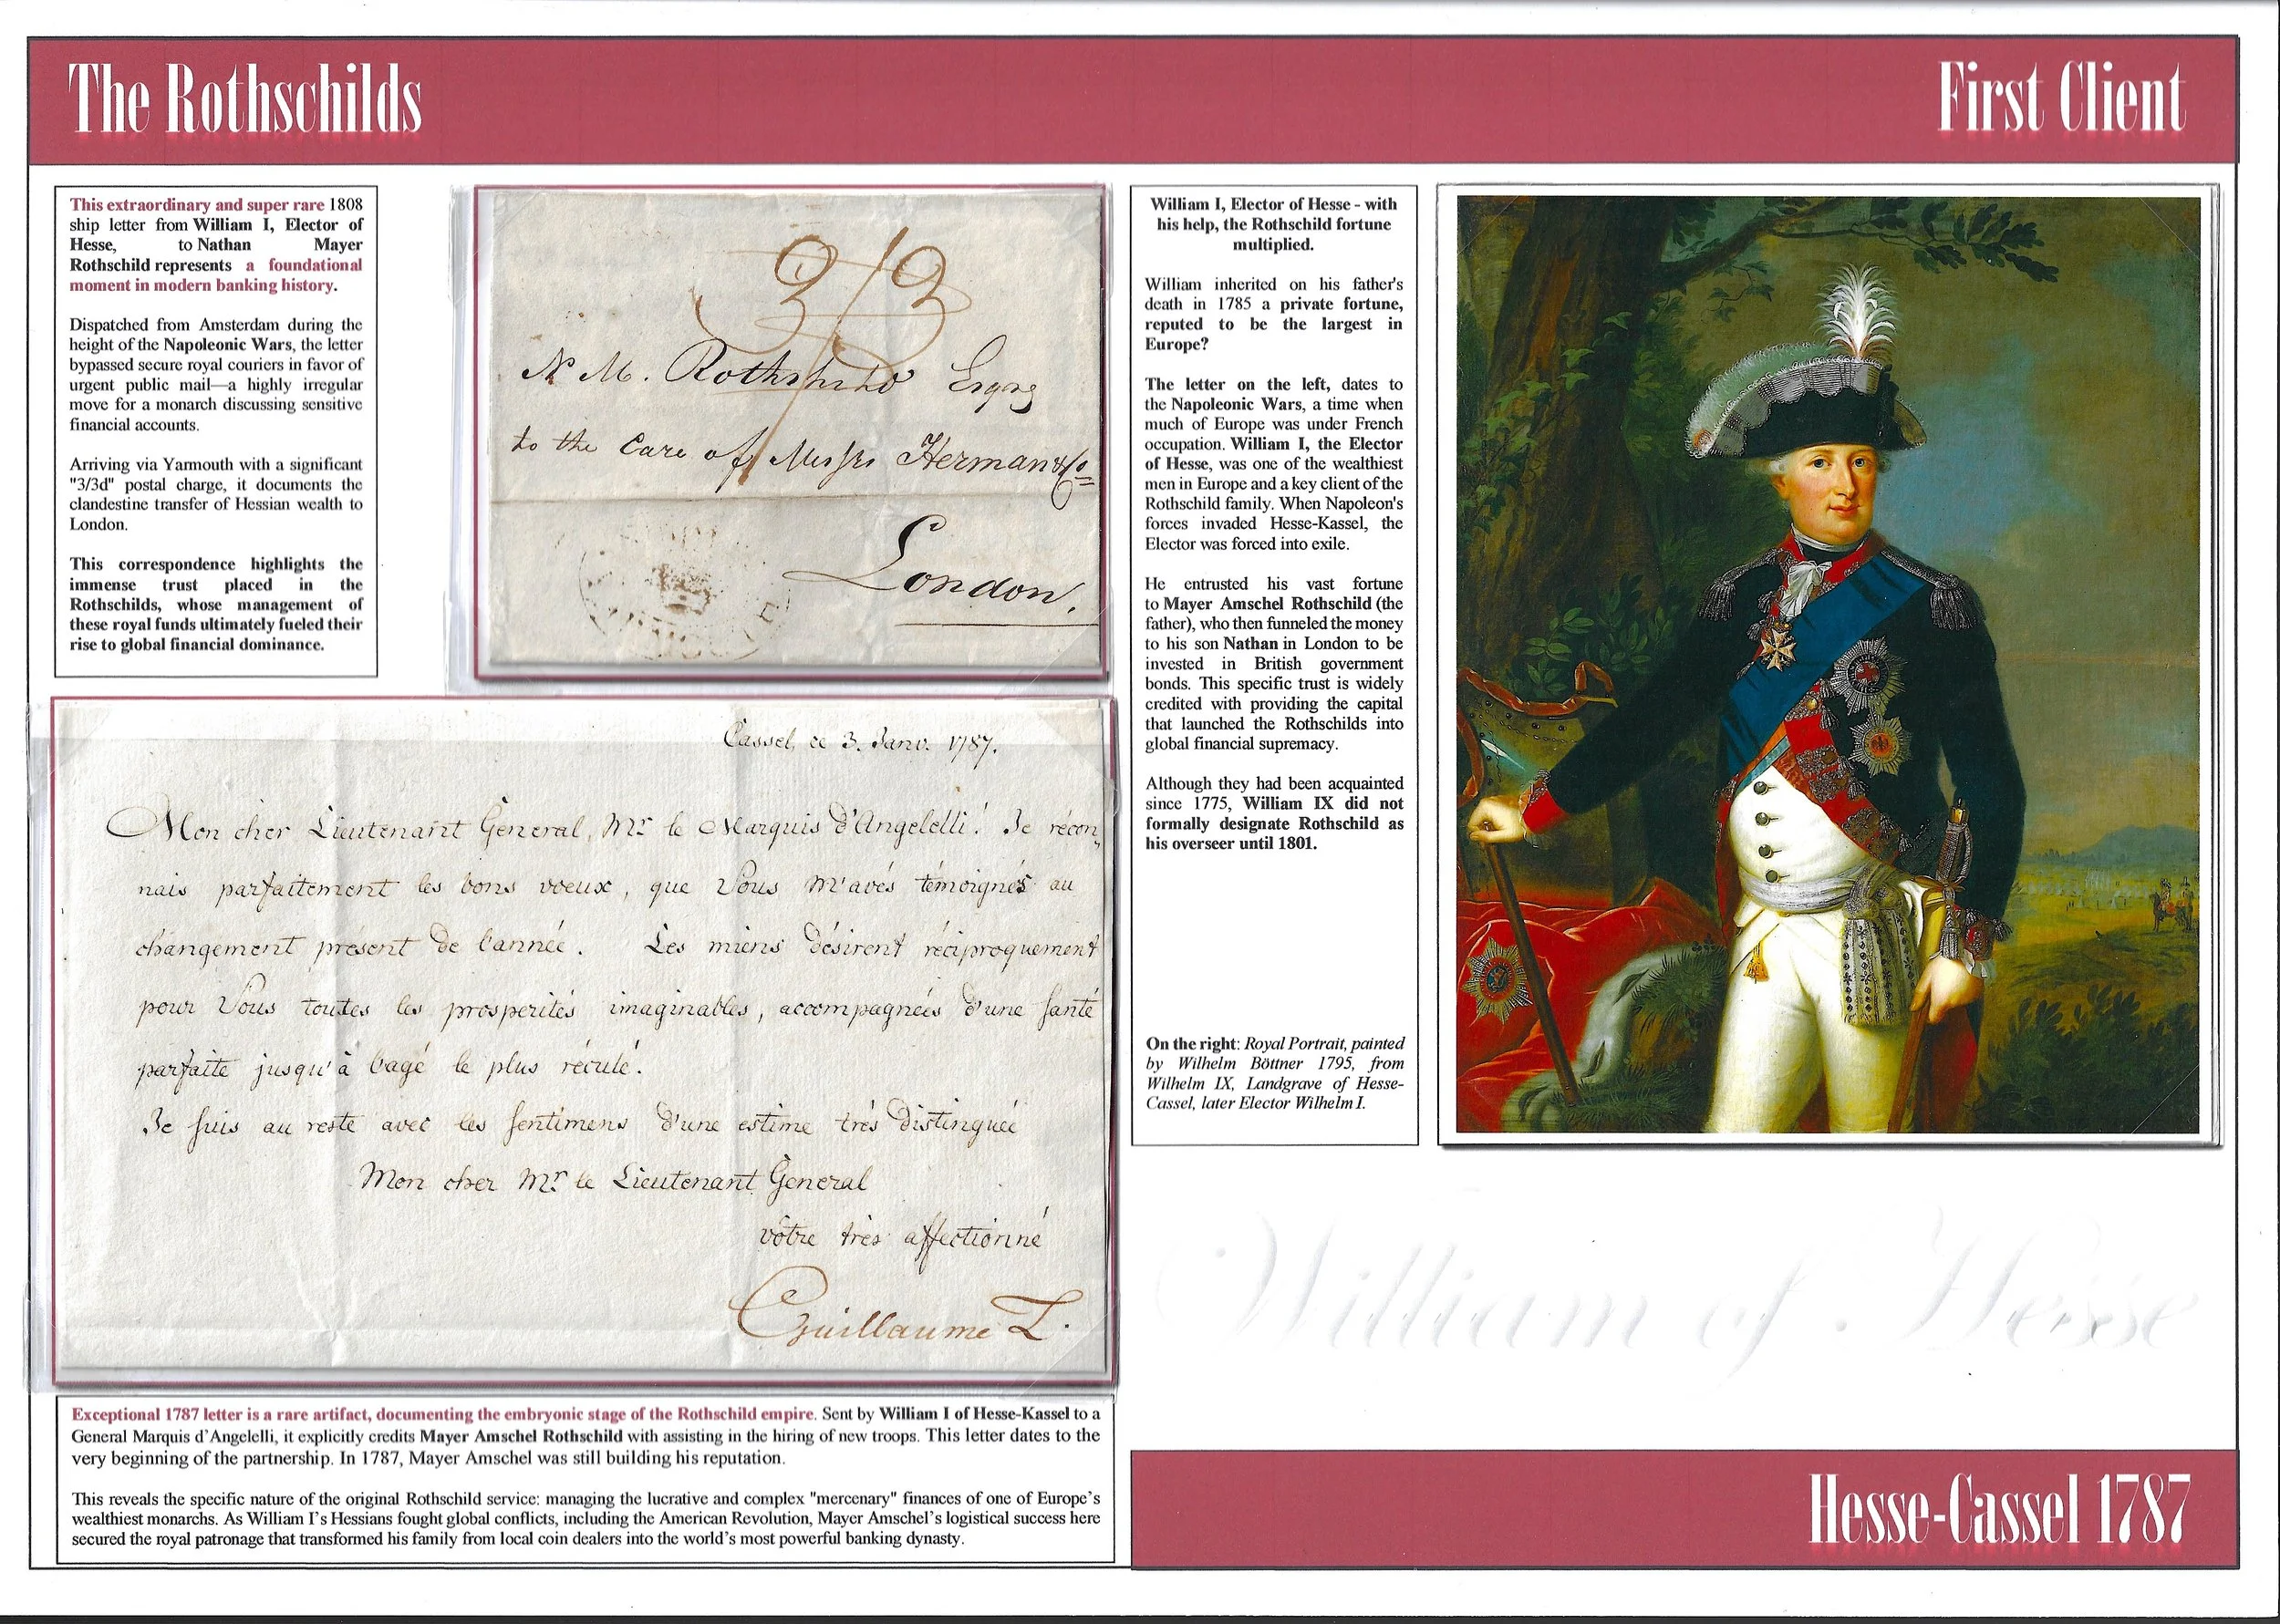 The Rothschilds
First Client
This extraordinary and super rare 1808
ship letter from William I, Elector of
Hesse, to Nathan Mayer
Rothschild represents a foundational
moment in modern banking history.
Dispatched from Amsterdam during the
height of the Napoleonic Wars, the letter
bypassed secure royal couriers in favor of
urgent public mail—a highly irregular
move for a monarch discussing sensitive
financial accounts.
Arriving via Yarmouth with a significant
"3/3d" postal charge, it documents the
clandestine transfer of Hessian wealth to
London.
This correspondence highlights the
immense trust placed in the
Rothschilds, whose management of
these royal funds ultimately fueled their
rise to global financial dominance.
3/3
N. M. Rothschild Esqre
to the Care of Messrs Herman & Co
London.
William I, Elector of Hesse - with
his help, the Rothschild fortune
multiplied.
William inherited on his father's
death in 1785 a private fortune,
reputed to be the largest in
Europe?
The letter on the left, dates to
the Napoleonic Wars, a time when
much of Europe was under French
occupation. William I, the Elector
of Hesse, was one of the wealthiest
men in Europe and a key client of the
Rothschild family. When Napoleon's
forces invaded Hesse-Kassel, the
Elector was forced into exile.
He entrusted his vast fortune
to Mayer Amschel Rothschild (the
father), who then funneled the money
to his son Nathan in London to be
invested in British government
bonds. This specific trust is widely
credited with providing the capital
that launched the Rothschilds into
global financial supremacy.
Although they had been acquainted
since 1775, William IX did not
formally designate Rothschild as
his overseer until 1801.
On the right: Royal Portrait, painted
by Wilhelm Böttner 1795, from
Wilhelm IX, Landgrave of Hesse-
Cassel, later Elector Wilhelm I.
Cassel, ce 3. Janv. 1787.
Mon cher Lieutenant Général, Mr. le Marquis d'Angelelli! Je récon-
nais parfaitement les bons voeux, que Vous m'avés témoignés au
changement présent de l'année. Les miens désirent réciproquement
pour Vous toutes les prosperités imaginables, accompagnées d'une santé
parfaite jusqu'à l'agé le plus réculé.
Je suis au reste avec les sentimens d'une estime trés distinguée
Mon cher Mr. le Lieutenant Général
vôtre très affectionné
Guillaume L.
William of Hesse
Exceptional 1787 letter is a rare artifact, documenting the embryonic stage of the Rothschild empire. Sent by William I of Hesse-Kassel to a
General Marquis d'Angelelli, it explicitly credits Mayer Amschel Rothschild with assisting in the hiring of new troops. This letter dates to the
very beginning of the partnership. In 1787, Mayer Amschel was still building his reputation.
This reveals the specific nature of the original Rothschild service: managing the lucrative and complex "mercenary" finances of one of Europe's
wealthiest monarchs. As William I's Hessians fought global conflicts, including the American Revolution, Mayer Amschel's logistical success here
secured the royal patronage that transformed his family from local coin dealers into the world's most powerful banking dynasty.
Hesse-Cassel 1787